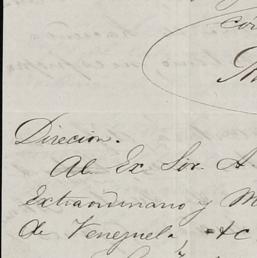 Direcion.
Al Ex Sor. A.
Extraordinario y M
de Venezuela, &c